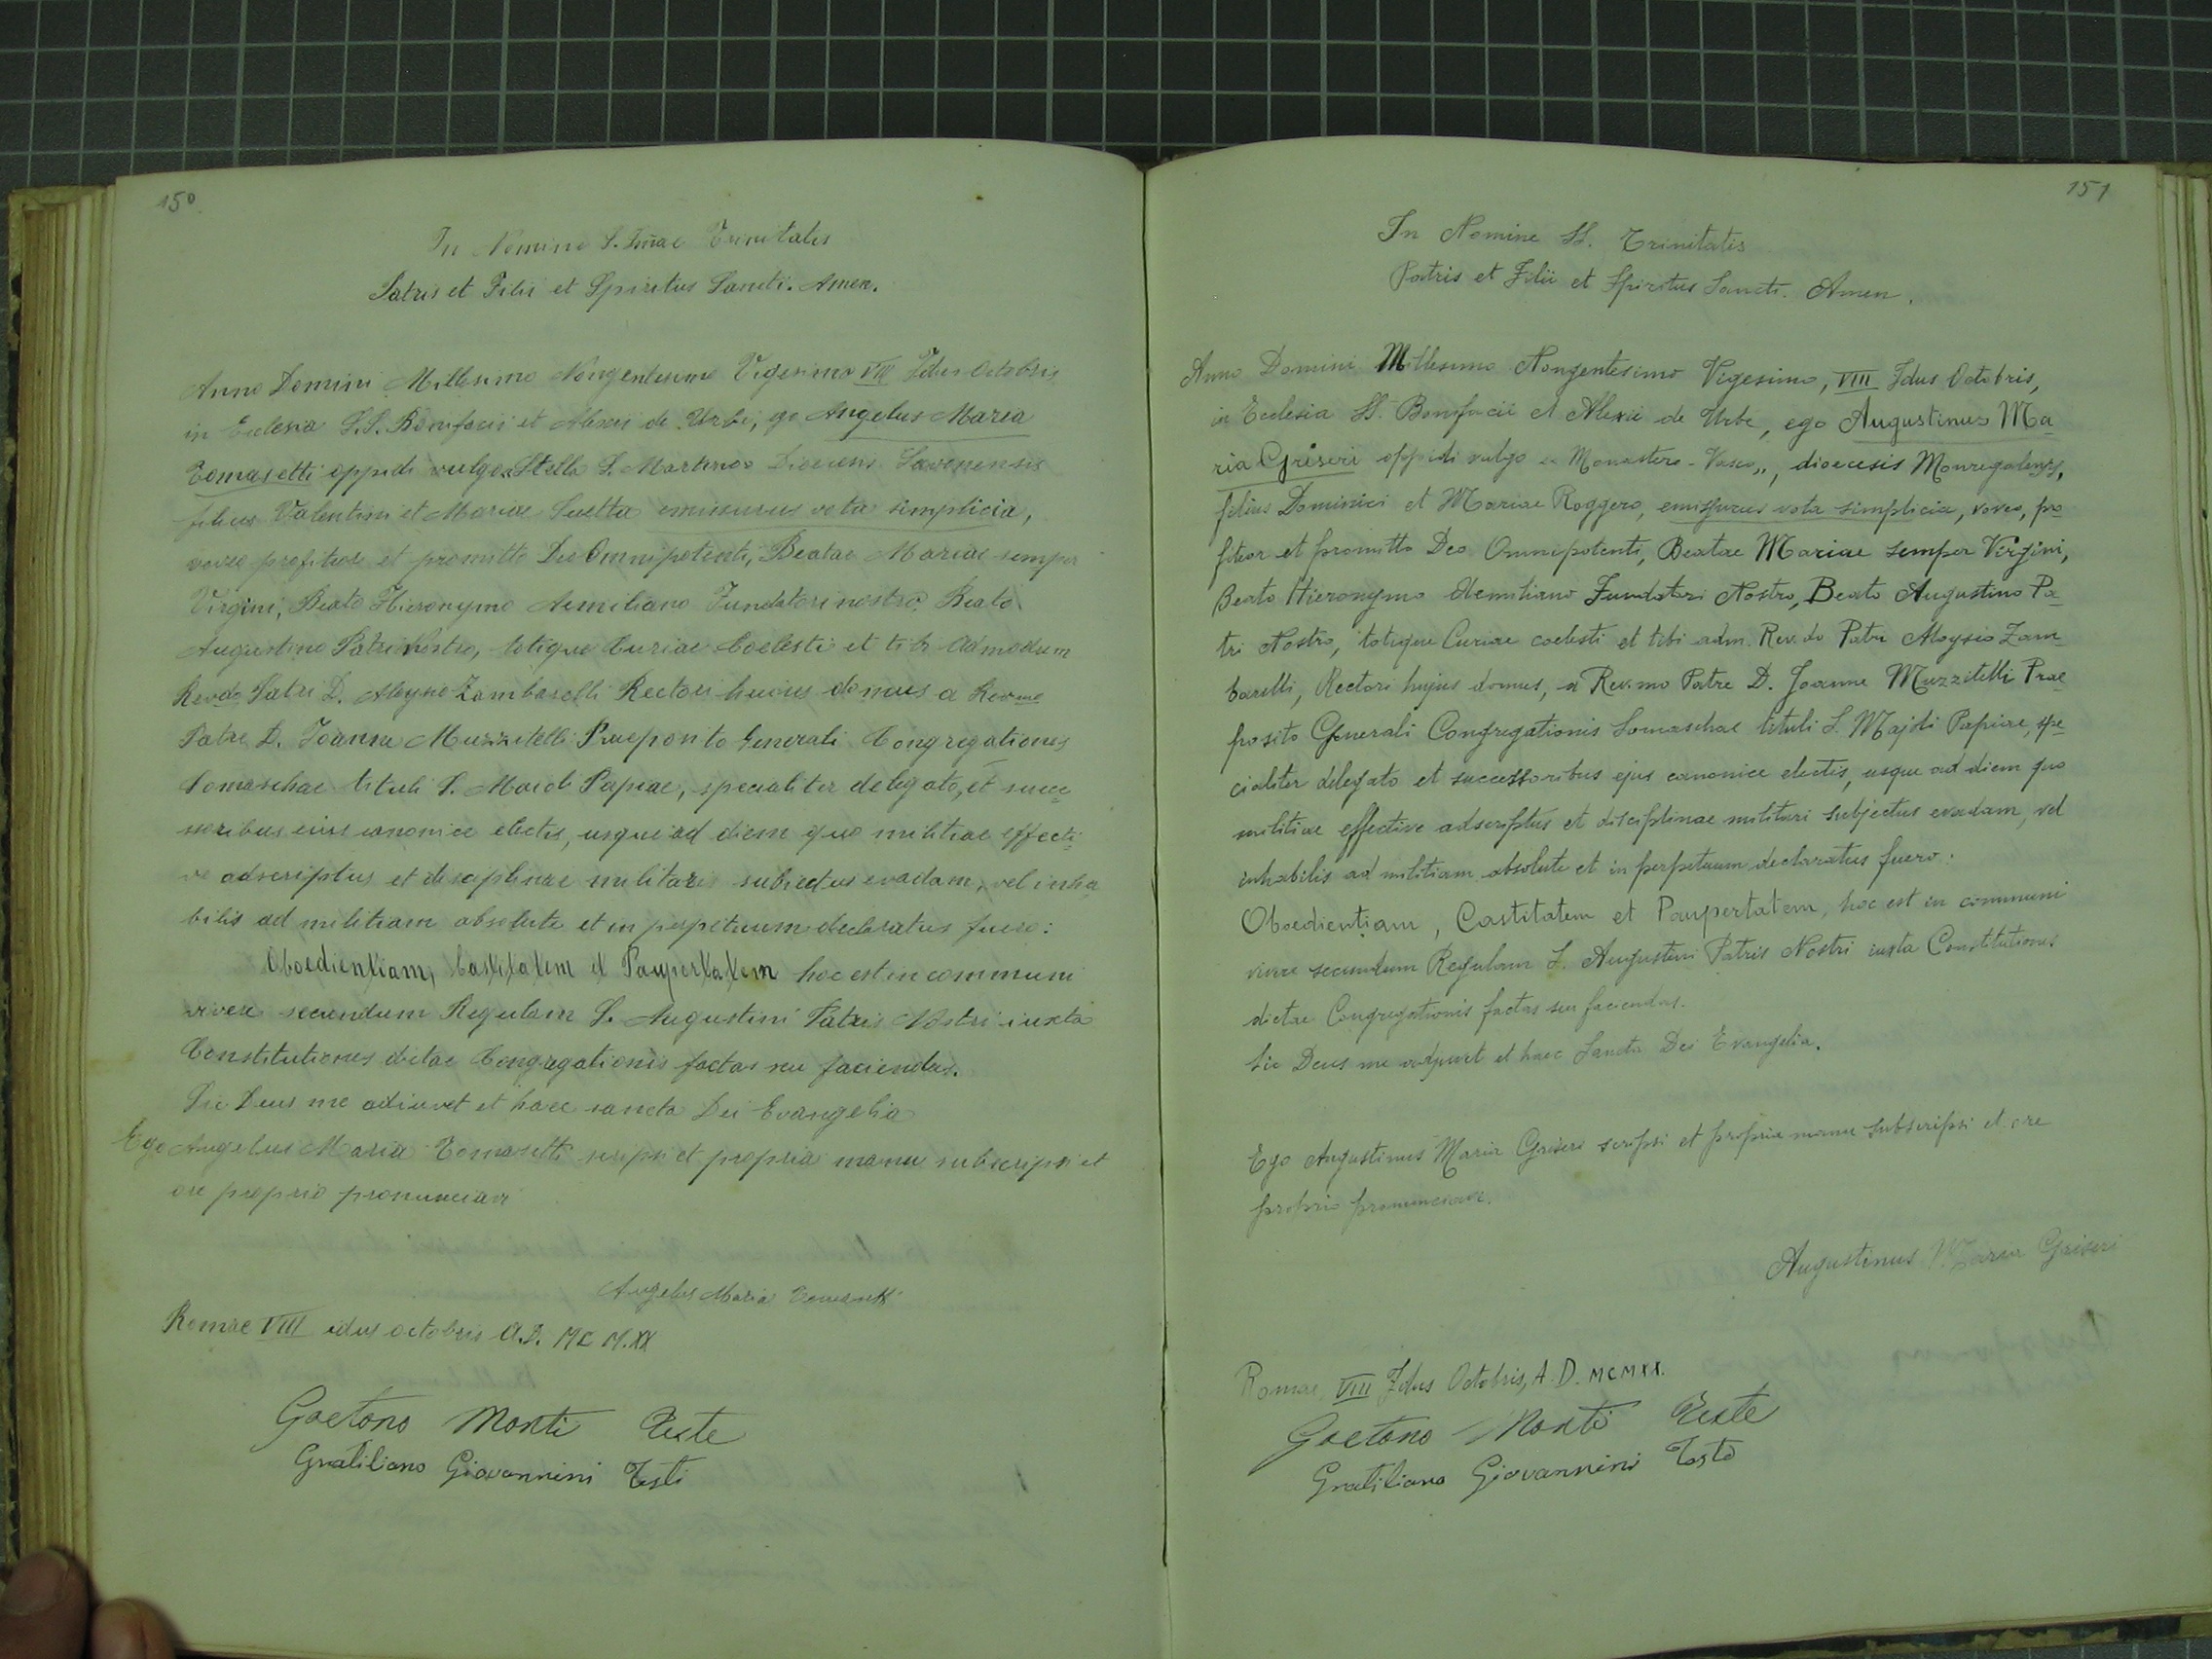 150.
In Nomine S.Smae Trinitatis
Patris et Filii et Spiritus Sancti. Amen.
Anno Domini Millesimo Nongentesimo Vigesimo VIII Idus Octobris
in Eclesia S.S. Bonifacii et Alexii de Urbe, ego Angelus Maria
Tomasetti oppidi vulgo „Stella S. Martino" Dioecesis Savonensis
filius Valentini et Mariae emissurus vota simplicia,
voveo profiteor et promitto Deo Omnipotenti, Beatae Mariae semper
Virgini, Beato Hieronymo Aemiliano Fundatori nostro, Beato
Augustino Patri Nostro, totique Curiae Coelesti et tibi Admodum
Revdo Patri D. Aloysio Zambarelli Rectori huius domus a Revmo
Patre D. Joanne Muzzitelli Praeposito Generali Congregationis
Somaschae tituli S. Maioli Papiae, specialiter delegato, et succe
soribus eius canonice electis, usque ad diem quo militiae effecti-
ve adscriptus et disciplinae militaris subiectus evadam, vel inha
bilis ad militiam absolute et in perpetuum declaratus fuero:
Oboedientiam, Castitatem et Paupertatem hoc est in communi
vivere secundum Regulam S. Augustini Patris Nostri iuxta
Constitutiones dictae Congregationis factas seu faciendas.
Sic Deus me adiuvet et haec sancta Dei Evangelia
Ego Angelus Maria Tomasetti scripsi et propria manu subscripsi et
ore proprio pronunciavi
Angelus Maria Tomasetti
Romae VIII idus octobris A.D. MCM.XX
Gaetano Monti Teste
Gratiliano Giovannini Testi
151
In Nomine SS. Trinitatis
Patris et Filii et Spiritus Sancti. Amen.
Anno Domini Millesimo Nongentesimo Vigesimo, VIII Idus Octobris,
in Ecclesia SS. Bonifacii et Alexii de Urbe, ego Augustinus Ma-
ria Griseri oppidi vulgo „Monastero-Vasco„, dioecesis Monregalensis,
filius Dominici et Mariae Roggero, emissurus vota simplicia, voveo, pro
fiteor et promitto Deo Omnipotenti, Beatae Mariae semper Virgini,
Beato Hieronymo Aemiliano Fundatori Nostro, Beato Augustino Pa-
tri Nostro, totique Curiae coelesti et tibi adm. Rev.do Patri Aloysio Zam-
barelli, Rectori hujus domus, a Rev.mo Patre D. Joanne Muzzitelli Prae-
posito Generali Congregationis Somaschae tituli S. Majoli Papiae, spe-
cialiter delegato et successoribus ejus canonice electis, usque ad diem quo
militiae effective adscriptus et disciplinae militari subjectus evadam, vel
inhabilis ad militiam absolute et in perpetuum declaratus fuero:
Oboedientiam, Castitatem et Paupertatem, hoc est in communi
vivere secundum Regulam S. Augustini Patris Nostri iuxta Constitutiones
dictae Congregationis factas seu faciendas.
Sic Deus me adjuvet et haec Sancta Dei Evangelia.
Ego Augustinus Maria Griseri scripsi et propria manu subscripsi et ore
proprio pronunciavi.
Augustinus Maria Griseri
Romae VIII Idus Octobris, A.D. MCMXX.
Gaetano Monti Teste
Gratiliano Giovannini Teste